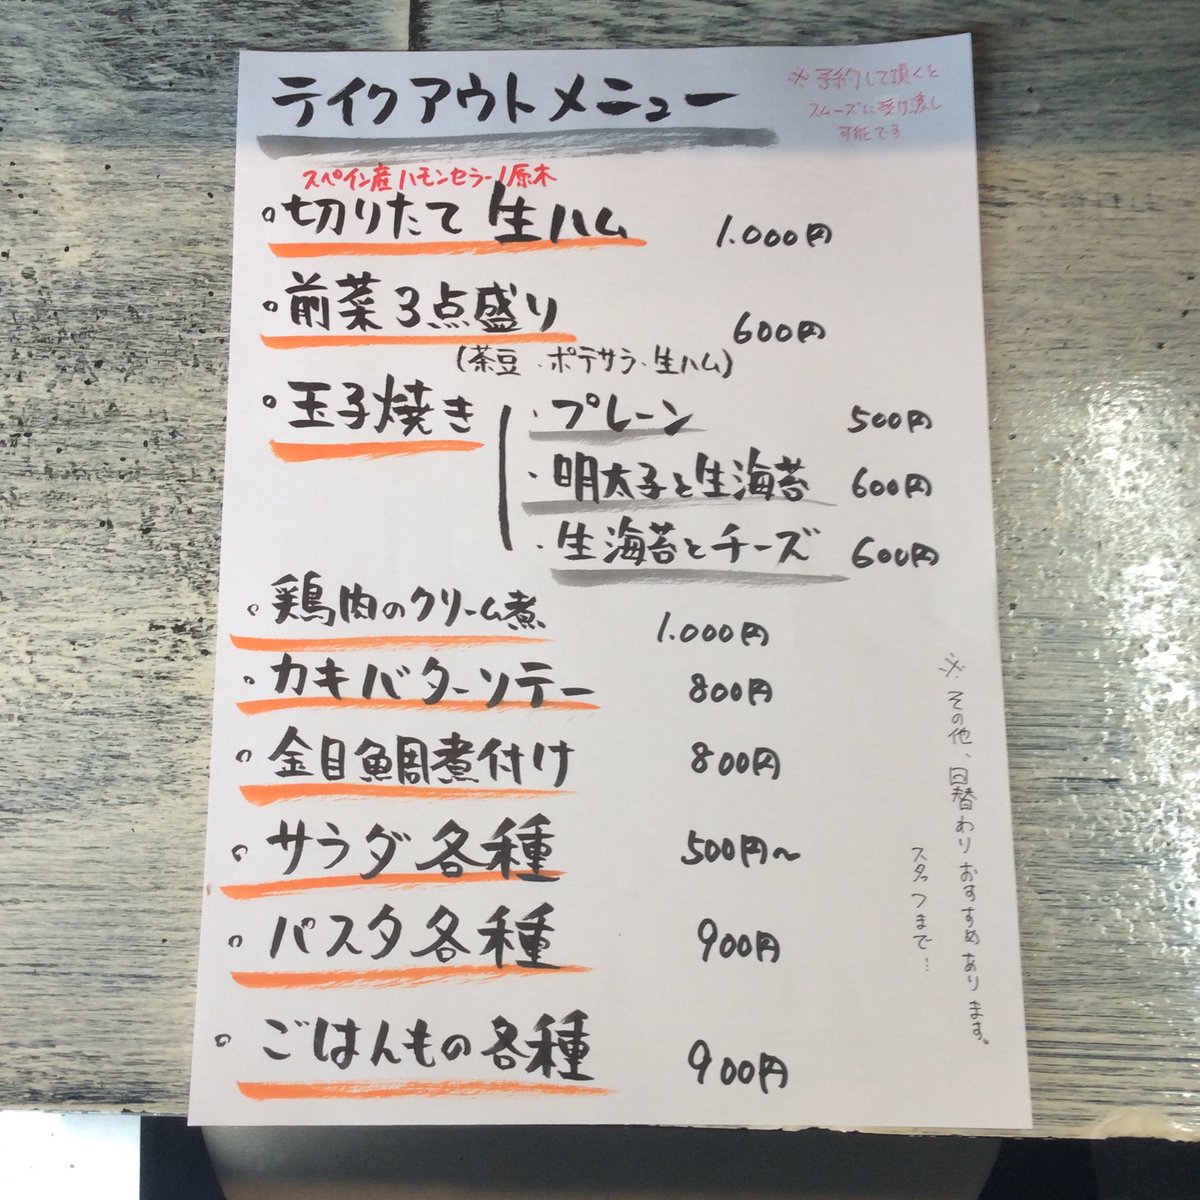 テイクアウトメニュー
※予約して頂くと
スムーズに受け渡し
可能です
スペイン産ハモンセラーノ原木
。切りたて 生ハム 1.000円
。前菜3点盛り 600円
(茶豆、ポテサラ、生ハム)
。玉子焼き
・プレーン 500円
・明太子と生海苔 600円
・生海苔とチーズ 600円
。鶏肉のクリーム煮 1.000円
。カキバターソテー 800円
。金目鯛煮付け 800円
。サラダ各種 500円〜
。パスタ各種 900円
。ごはんもの各種 900円
※その他、日替わりおすすめあります。
スタッフまで…